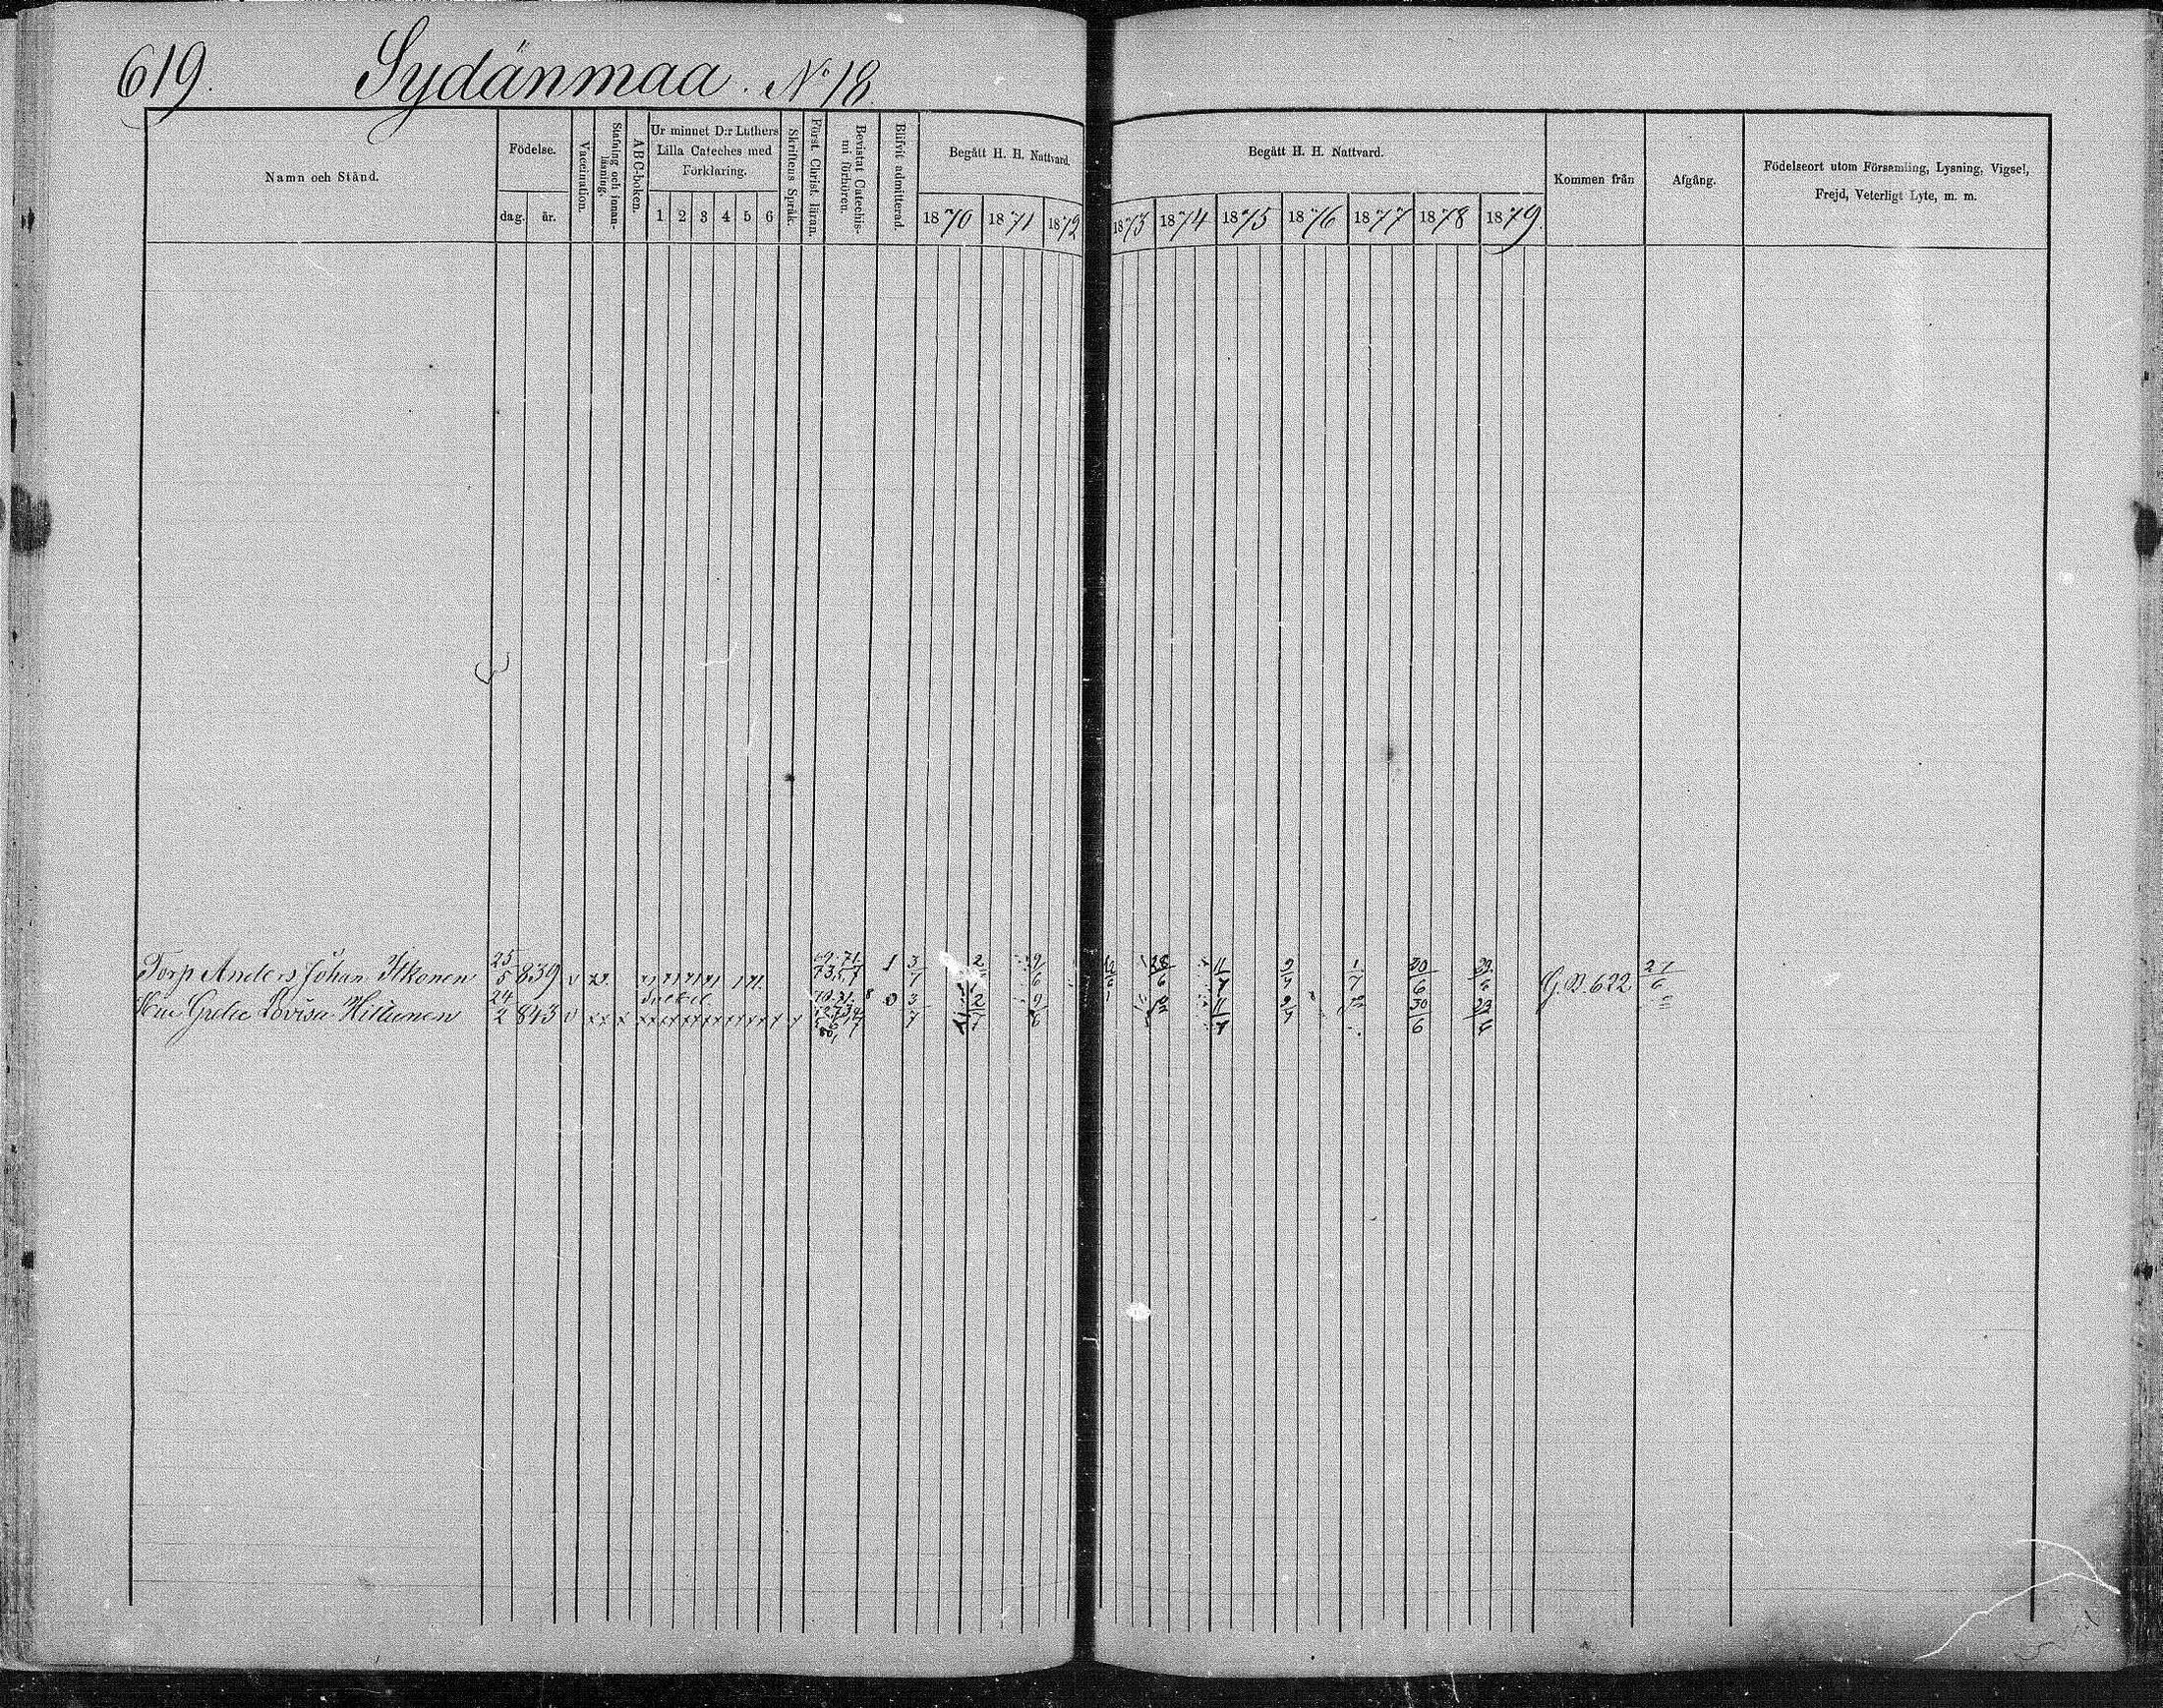 619. Sydänmaa. No 18.
Namn och Stånd.
Födelse.
dag. år.
Vaccination.
Stafning och innan-
läsning.
ABC-boken.
Ur minnet D:r Luthers
Lilla Cateches med
Förklaring.
1 2 3 4 5 6
Skriftens Språk.
Först. Christ. läran.
Bevistat Catechis-
mi förhören.
Blifvit admitterad.
Begått H. H. Nattvard.
1870 1871 1872
Begått H. H. Nattvard.
1873 1874 1875 1876 1877 1878 1879.
Kommen från
Afgång.
Födelseort utom Församling, Lysning, Vigsel,
Frejd, Veterligt Lyte, m. m.
Torp Anders Johan Itkonen 25/5 839 v 3/7 2/7 9/6 28/6 11/7 9/7 1/7 30/6 G.B. 622 27/6
Hu Greta Lovisa Hiltunen 24/2 843 v 3/7 2/7 9/6 11/7 9/7 30/6 "